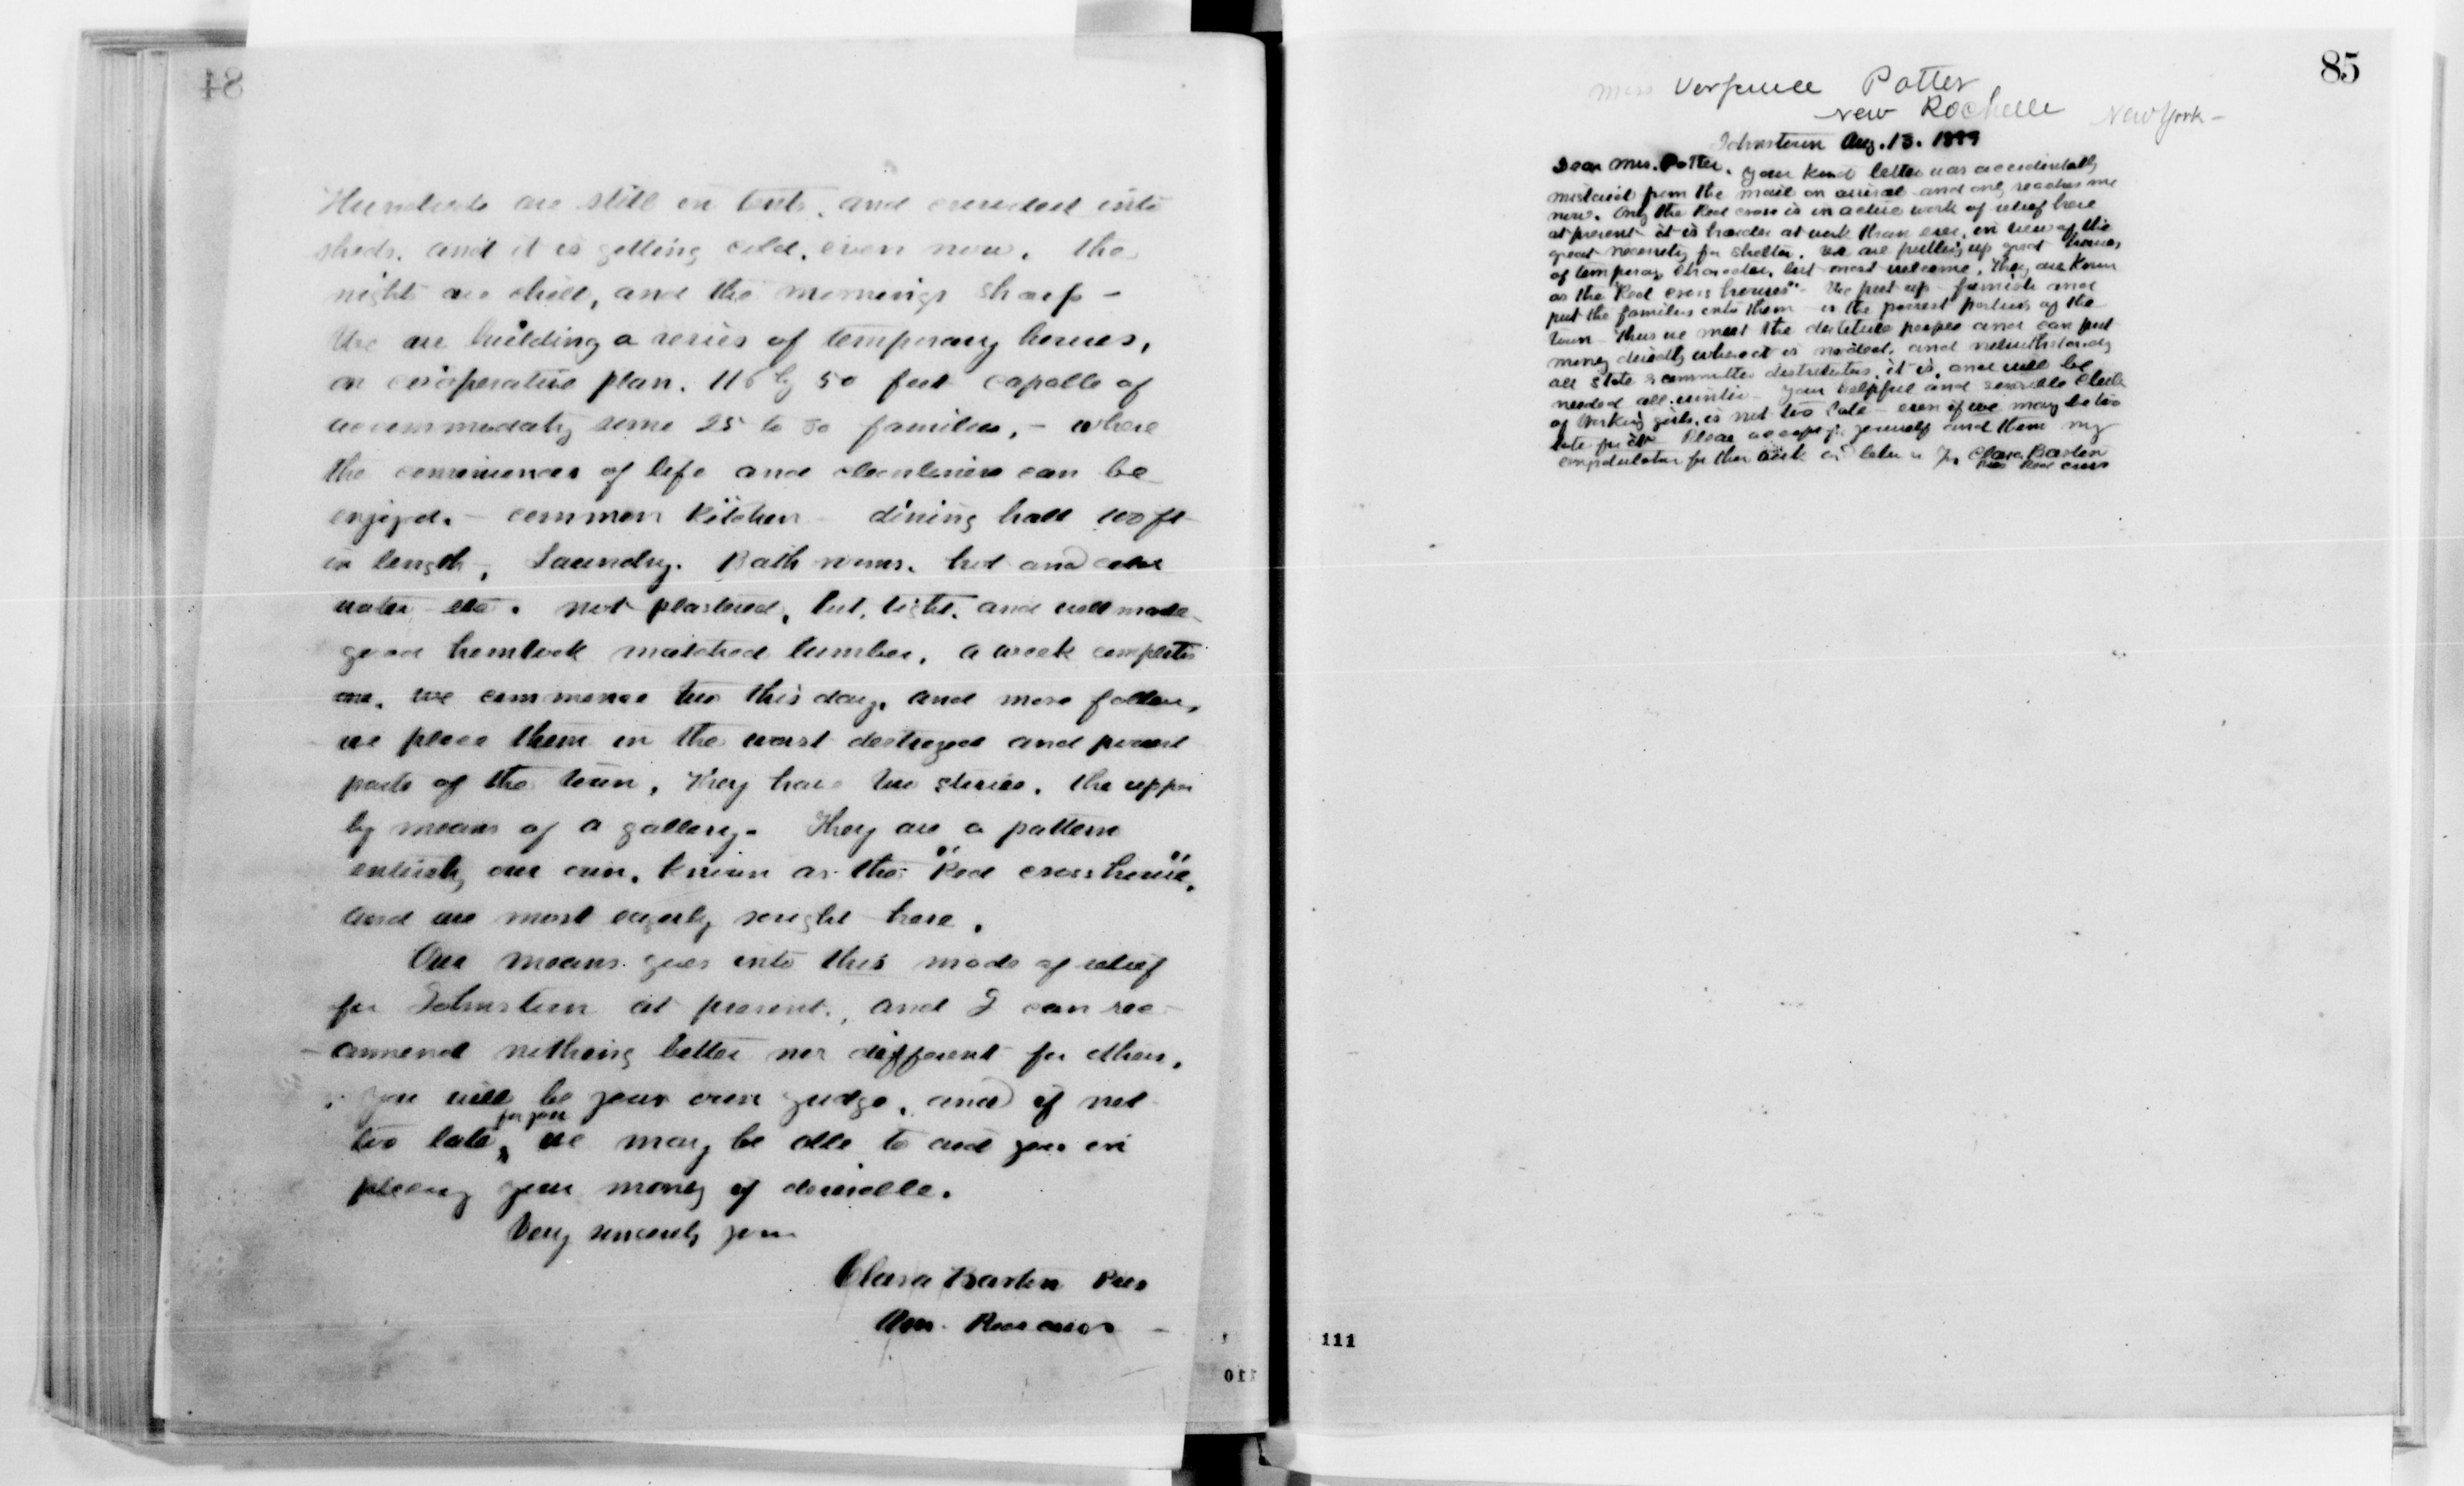 84
Hundreds are still in tents, and crowded into
sheds, and it is getting cold, even now. the
nights are chill, and the mornings sharp -
We are building a series of temporary houses,
on cooperative plan. 116 by 50 feet capable of
accommodating some 25 to 30 families, - where
the conveniences of life and cleanliness can be
enjoyed. - common Kitchen - dining hall 100 ft
in length, Laundry. Bath rooms. hot and cold
water etc. not plastered, but, tight, and well made
good hemlock matched lumber, a week completes
one. we commence two this day, and more follow,
we place them in the worst destroyed and poorest
parts of the town, They have two stories, the upper
by means of a gallery. They are a pattern
entirely our own. Known as the "Red cross house",
and are most eagerly sought here.
Our means goes into this mode of relief
for Johnstown at present, and I can rec-
-ommend nothing better nor different for others.
you will be your own judge, and if not
for you
too late, we may be able to aid you in
placing your money if desirable.
Very sincerely yours
Clara Barton Pres
Am. Red cross -
110
85
Miss Potter
New Rochelle New York -
Johnstown Aug. 13. 1889
Dear Mrs. Potter. your kind letter was accidentally
mislaid from the mail on arrival and only reaches me
now. Only the Red cross is in active work of relief here
at present it is harder at work than ever, in view of the
great necessity for shelter. We are putting up great houses
of temporary character, but most welcome, They are Known
as the "Red cross houses" - We put up - furnish and
put the families into them - in the poorest portions of the
town - thus we meet the destitute people and can put
money directly where it is needed, and notwithstanding
all State & committee distributions, it is, and will be
needed all winter - your helpful and sensible Club
of Working girls, is not too late - even if we may be too
late for it - Please accept for yourself and them my
congratulations for their work Clara Barton
Pres Red cross
111